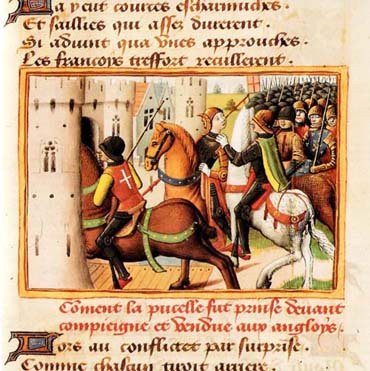 La y eut courtes escharmuches.
Et saillies qui assez durerent.
Si aduint qua vnes approuches.
Les francoys tressfort recullerent.
Coment la pucelle fut prinse deuant
compieigne et vendue aux angloys.
Lors au conflict et par surprise.
Comme chascun tiroit arriere.